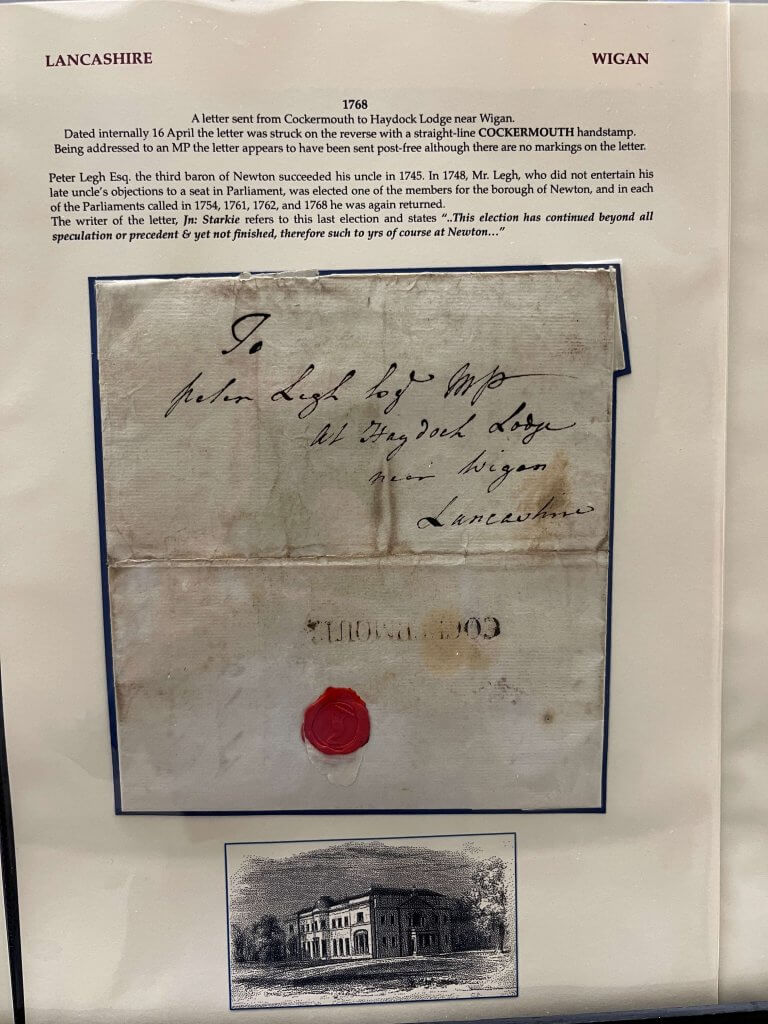 LANCASHIRE WIGAN
1768
A letter sent from Cockermouth to Haydock Lodge near Wigan.
Dated internally 16 April the letter was struck on the reverse with a straight-line COCKERMOUTH handstamp.
Being addressed to an MP the letter appears to have been sent post-free although there are no markings on the letter.
Peter Legh Esq. the third baron of Newton succeeded his uncle in 1745. In 1748, Mr. Legh, who did not entertain his
late uncle's objections to a seat in Parliament, was elected one of the members for the borough of Newton, and in each
of the Parliaments called in 1754, 1761, 1762, and 1768 he was again returned.
The writer of the letter, Jn: Starkie refers to this last election and states “..This election has continued beyond all
speculation or precedent & yet not finished, therefore such to yrs of course at Newton…”
To
Peter Legh Esqr MP
At Haydock Lodge
near Wigan
Lancashire
COCKERMOUTH